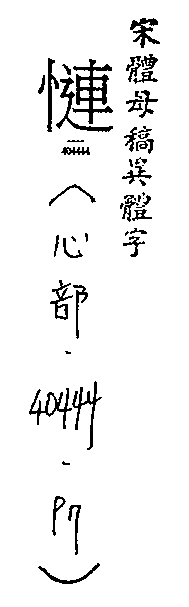 宋體母稿異體字
慩
40444
（心部．40444．P7）